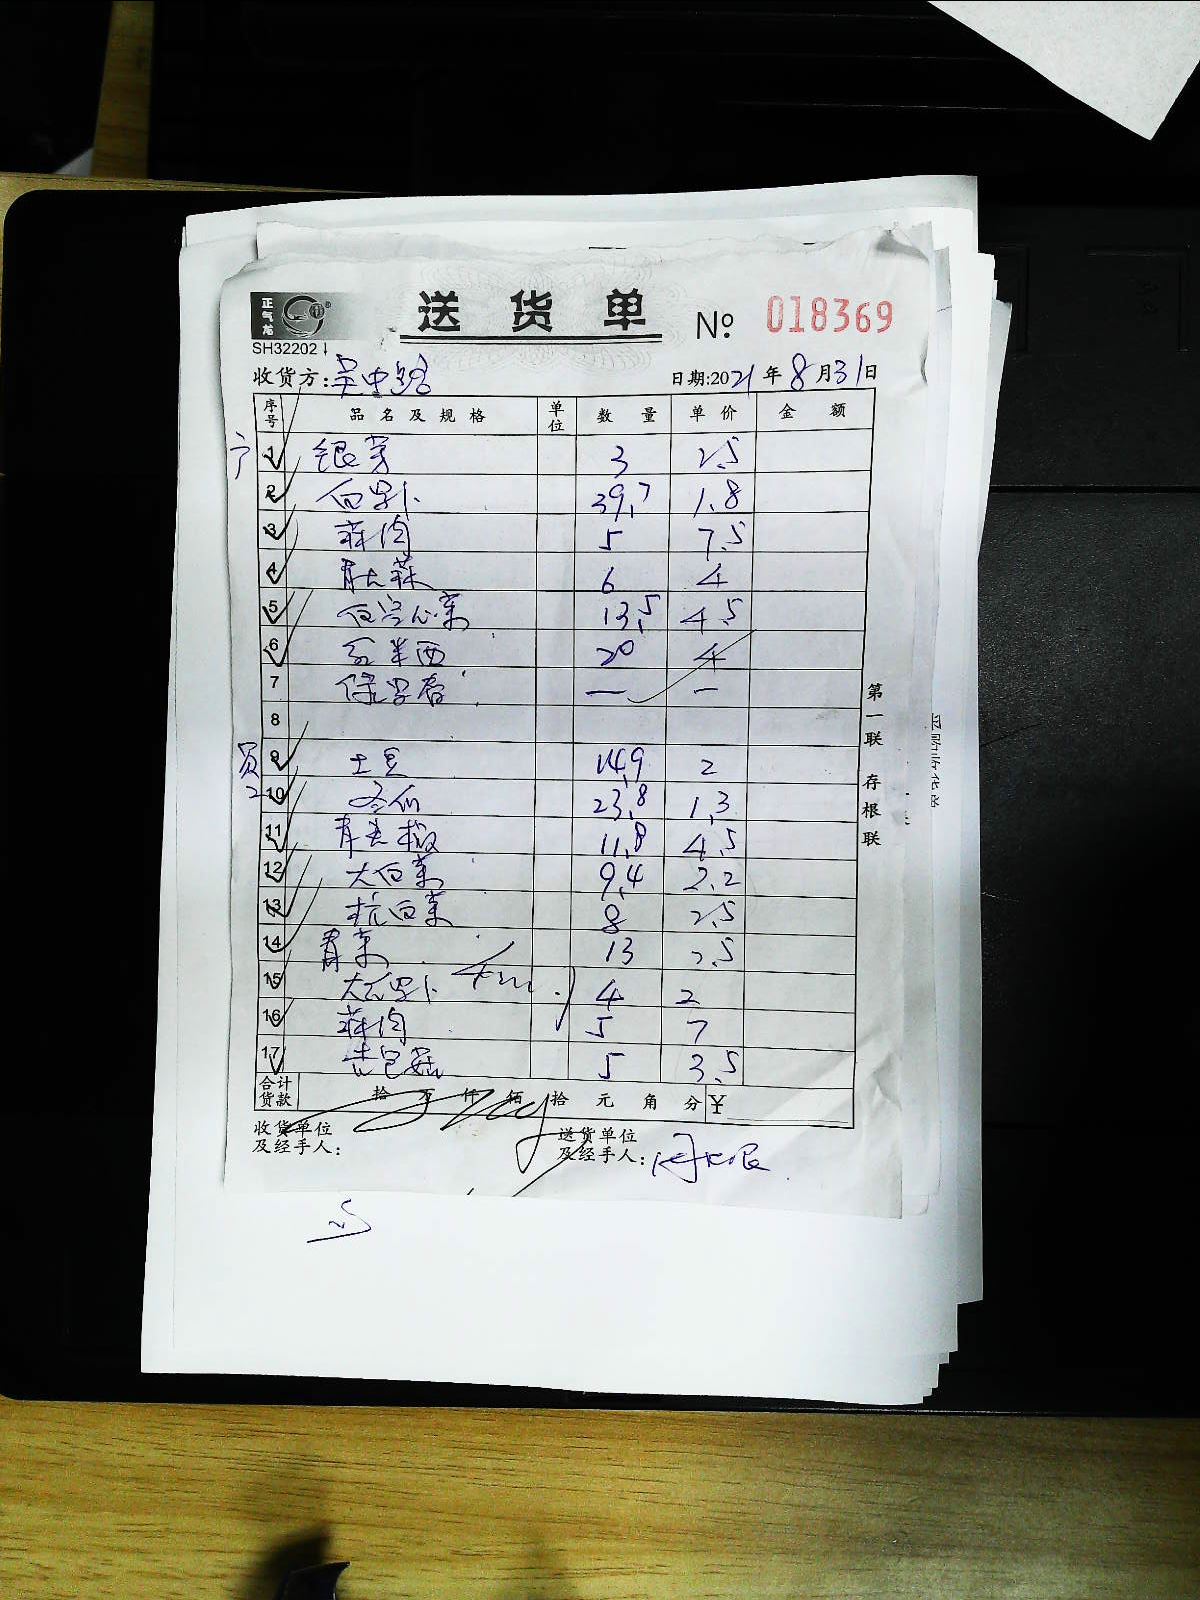 正气龙
送货单 № 018369
SH32202
收货方: 吴中路 日期:2021年8月31日
序号 品名及规格 单位 数量 单价 金额
1 银芽 3 2.5
2 白罗卜 39.7 1.8
3 蒜肉 5 7.5
4 青大蒜 6 4
5 白空心菜 13.5 4.5
6 20 4
7 — —
8
9 土豆 14.9 2
10 冬瓜 23.8 1.3
11 青尖椒 11.8 4.5
12 大白菜 9.4 2.2
13 杭白菜 8 2.5
14 青菜 13 2.5
15 大红罗卜 4 2
16 蒜肉 5 7
17 杏包菇 5 3.5
合计货款 拾 万 仟 佰 拾 元 角 分 ¥
收货单位及经手人:
送货单位及经手人:
第一联 存根联